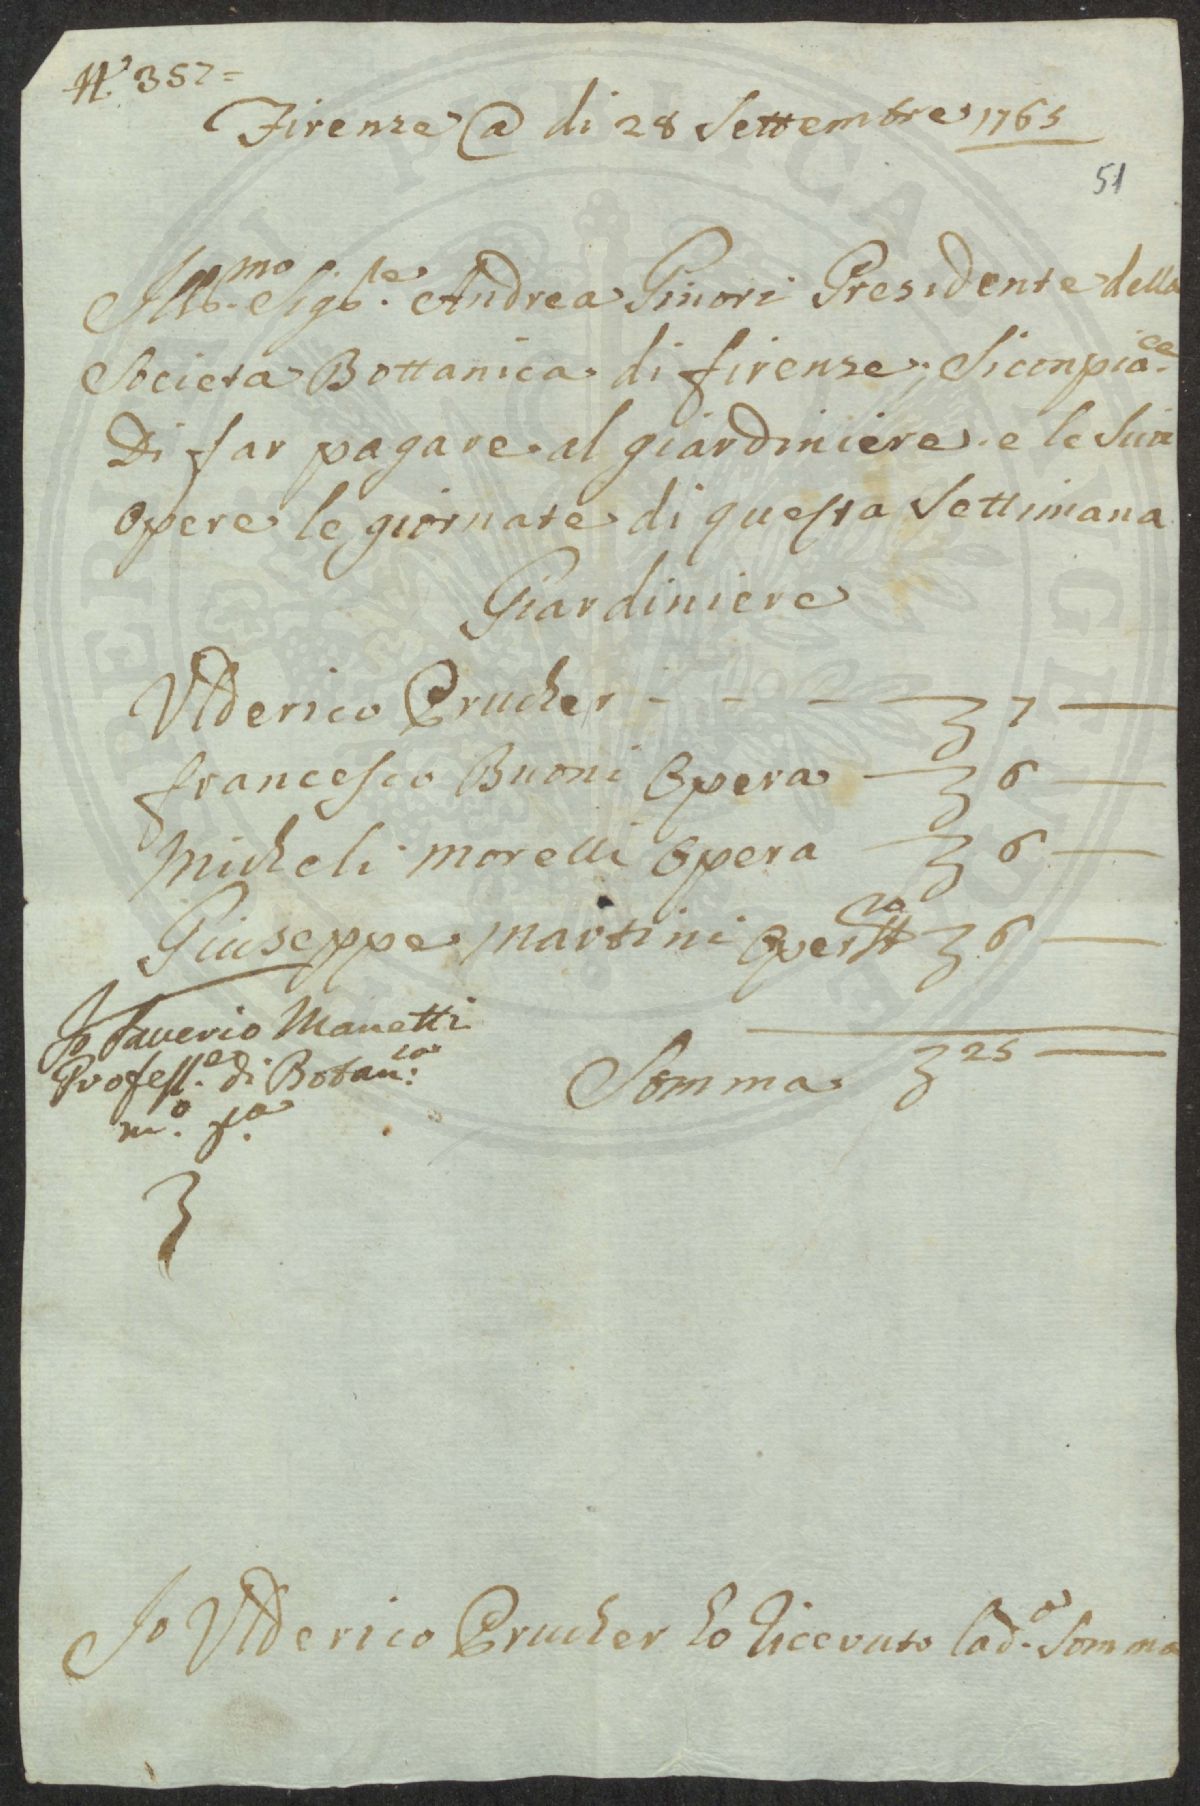 N.º 357=
Firenze @ di 28 Settembre 1765
51
Ill.mo Sig.re Andrea Ginori Presidente della
Societa Bottanica di firenze; Si conpia.ce
Di far pagare al giardiniere e le Sue
Opere le giornate di questa Settimana
Giardiniere
Ulderico Prucker - - - - 7 —
francesco Buoni Opera — 6 —
Micheli morelli Opera — 6 —
Giuseppe Martini Opera 6 —
Io Saverio Manetti
Profess.e di Botan.ca
m.o p.a
Somma 25 —
Io Ulderico Prucker ho Ricevuto la d.a Somma